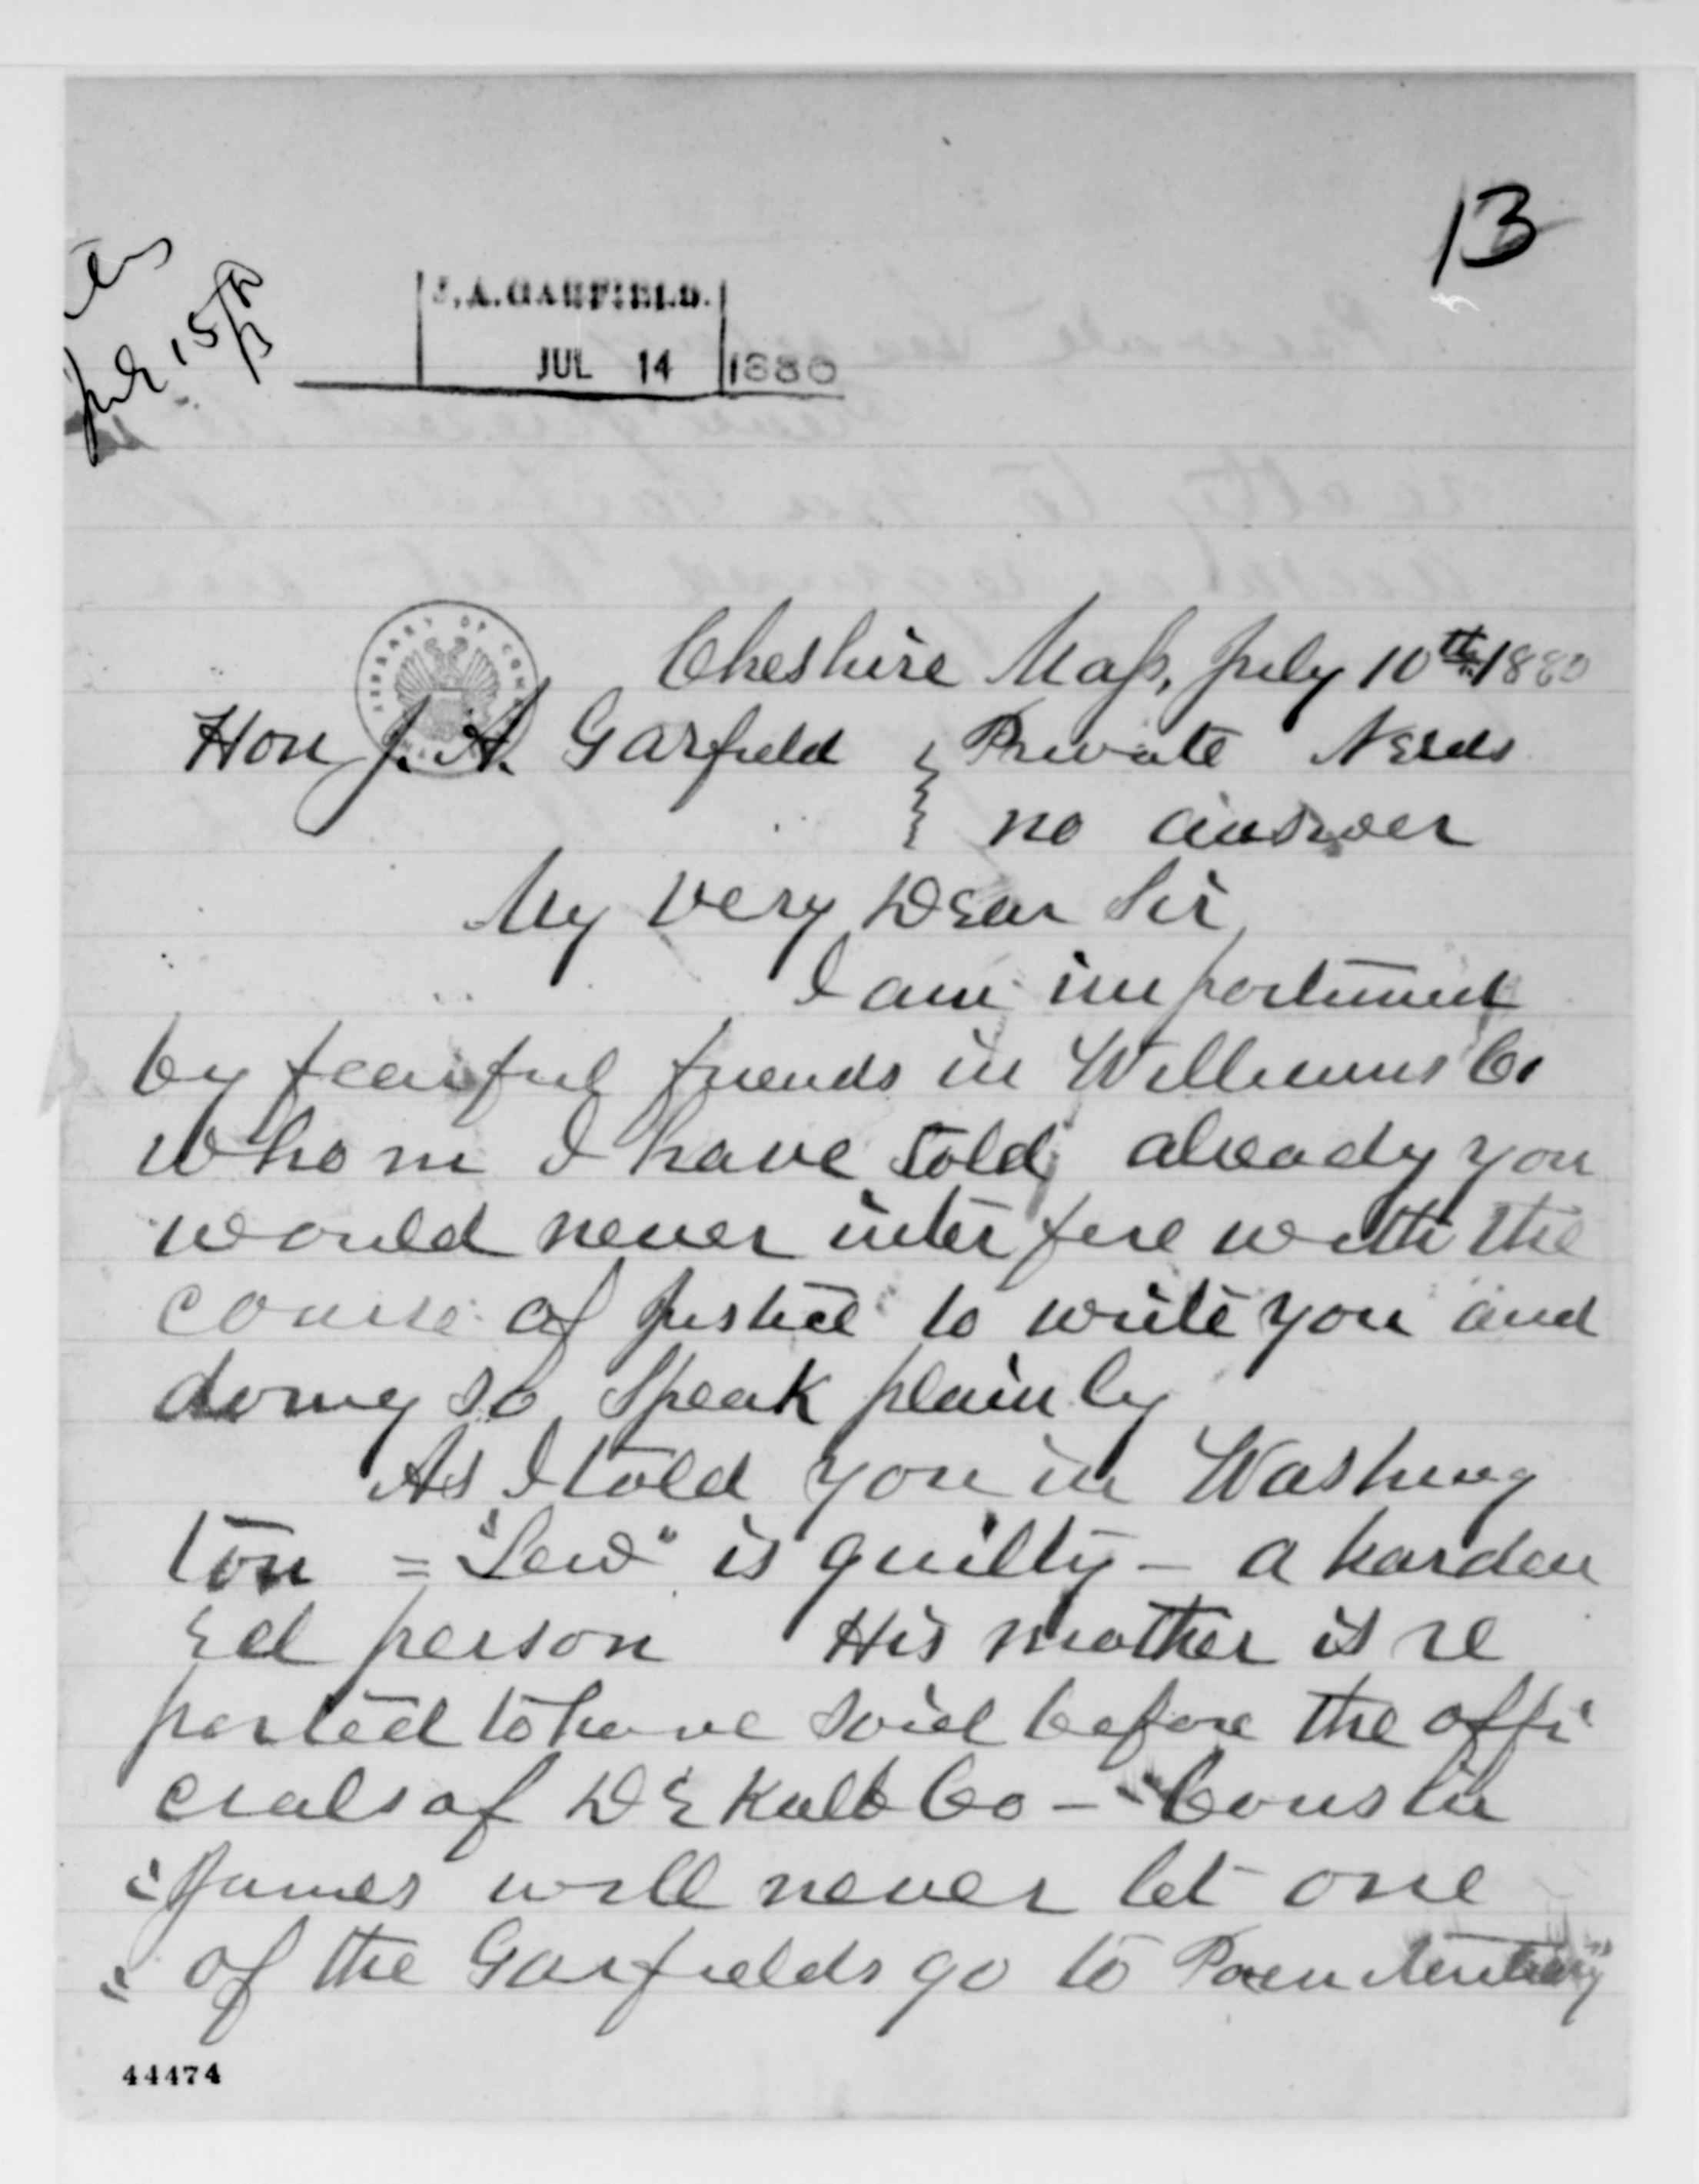 13
July 15/80
J. A. GARFIELD.
JUL 14 1880
LIBRARY OF CONG
Cheshire Mass, July 10th 1880
Hon J. A. Garfield } Private Needs
no answer
My very Dear Sir,
I am importuned
by fearful friends in Williams Co
whom I have told already you
would never interfere with the
course of justice to write you and
doing so speak plainly
As I told you in Washing
ton = "Lew" is guilty - a harden
ed person His mother is re
ported to have said before the offi
cials of DeKalb Co - "Cousin
"James will never let one
" of the Garfields go to Poenitentiary"
44474